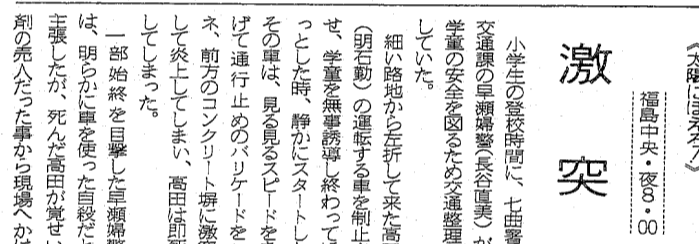 《太陽にほえろ!》
福島中央・夜8・00
激突
小学生の登校時間に、七曲署
交通課の早瀬婦警(長谷直美)が
学童の安全を図るため交通整理
していた。
細い路地から左折して来た高
(明石勤)の運転する車を制止
せ、学童を無事誘導し終わって
っとした時、静かにスタートし
その車は、見る見るスピードを
げて通行止めのバリケードを
ネ、前方のコンクリート塀に激突
して炎上してしまい、高田は即死
してしまった。
一部始終を目撃した早瀬婦警
は、明らかに車を使った自殺だと
主張したが、死んだ高田が覚せい
剤の売人だった事から現場へかけ